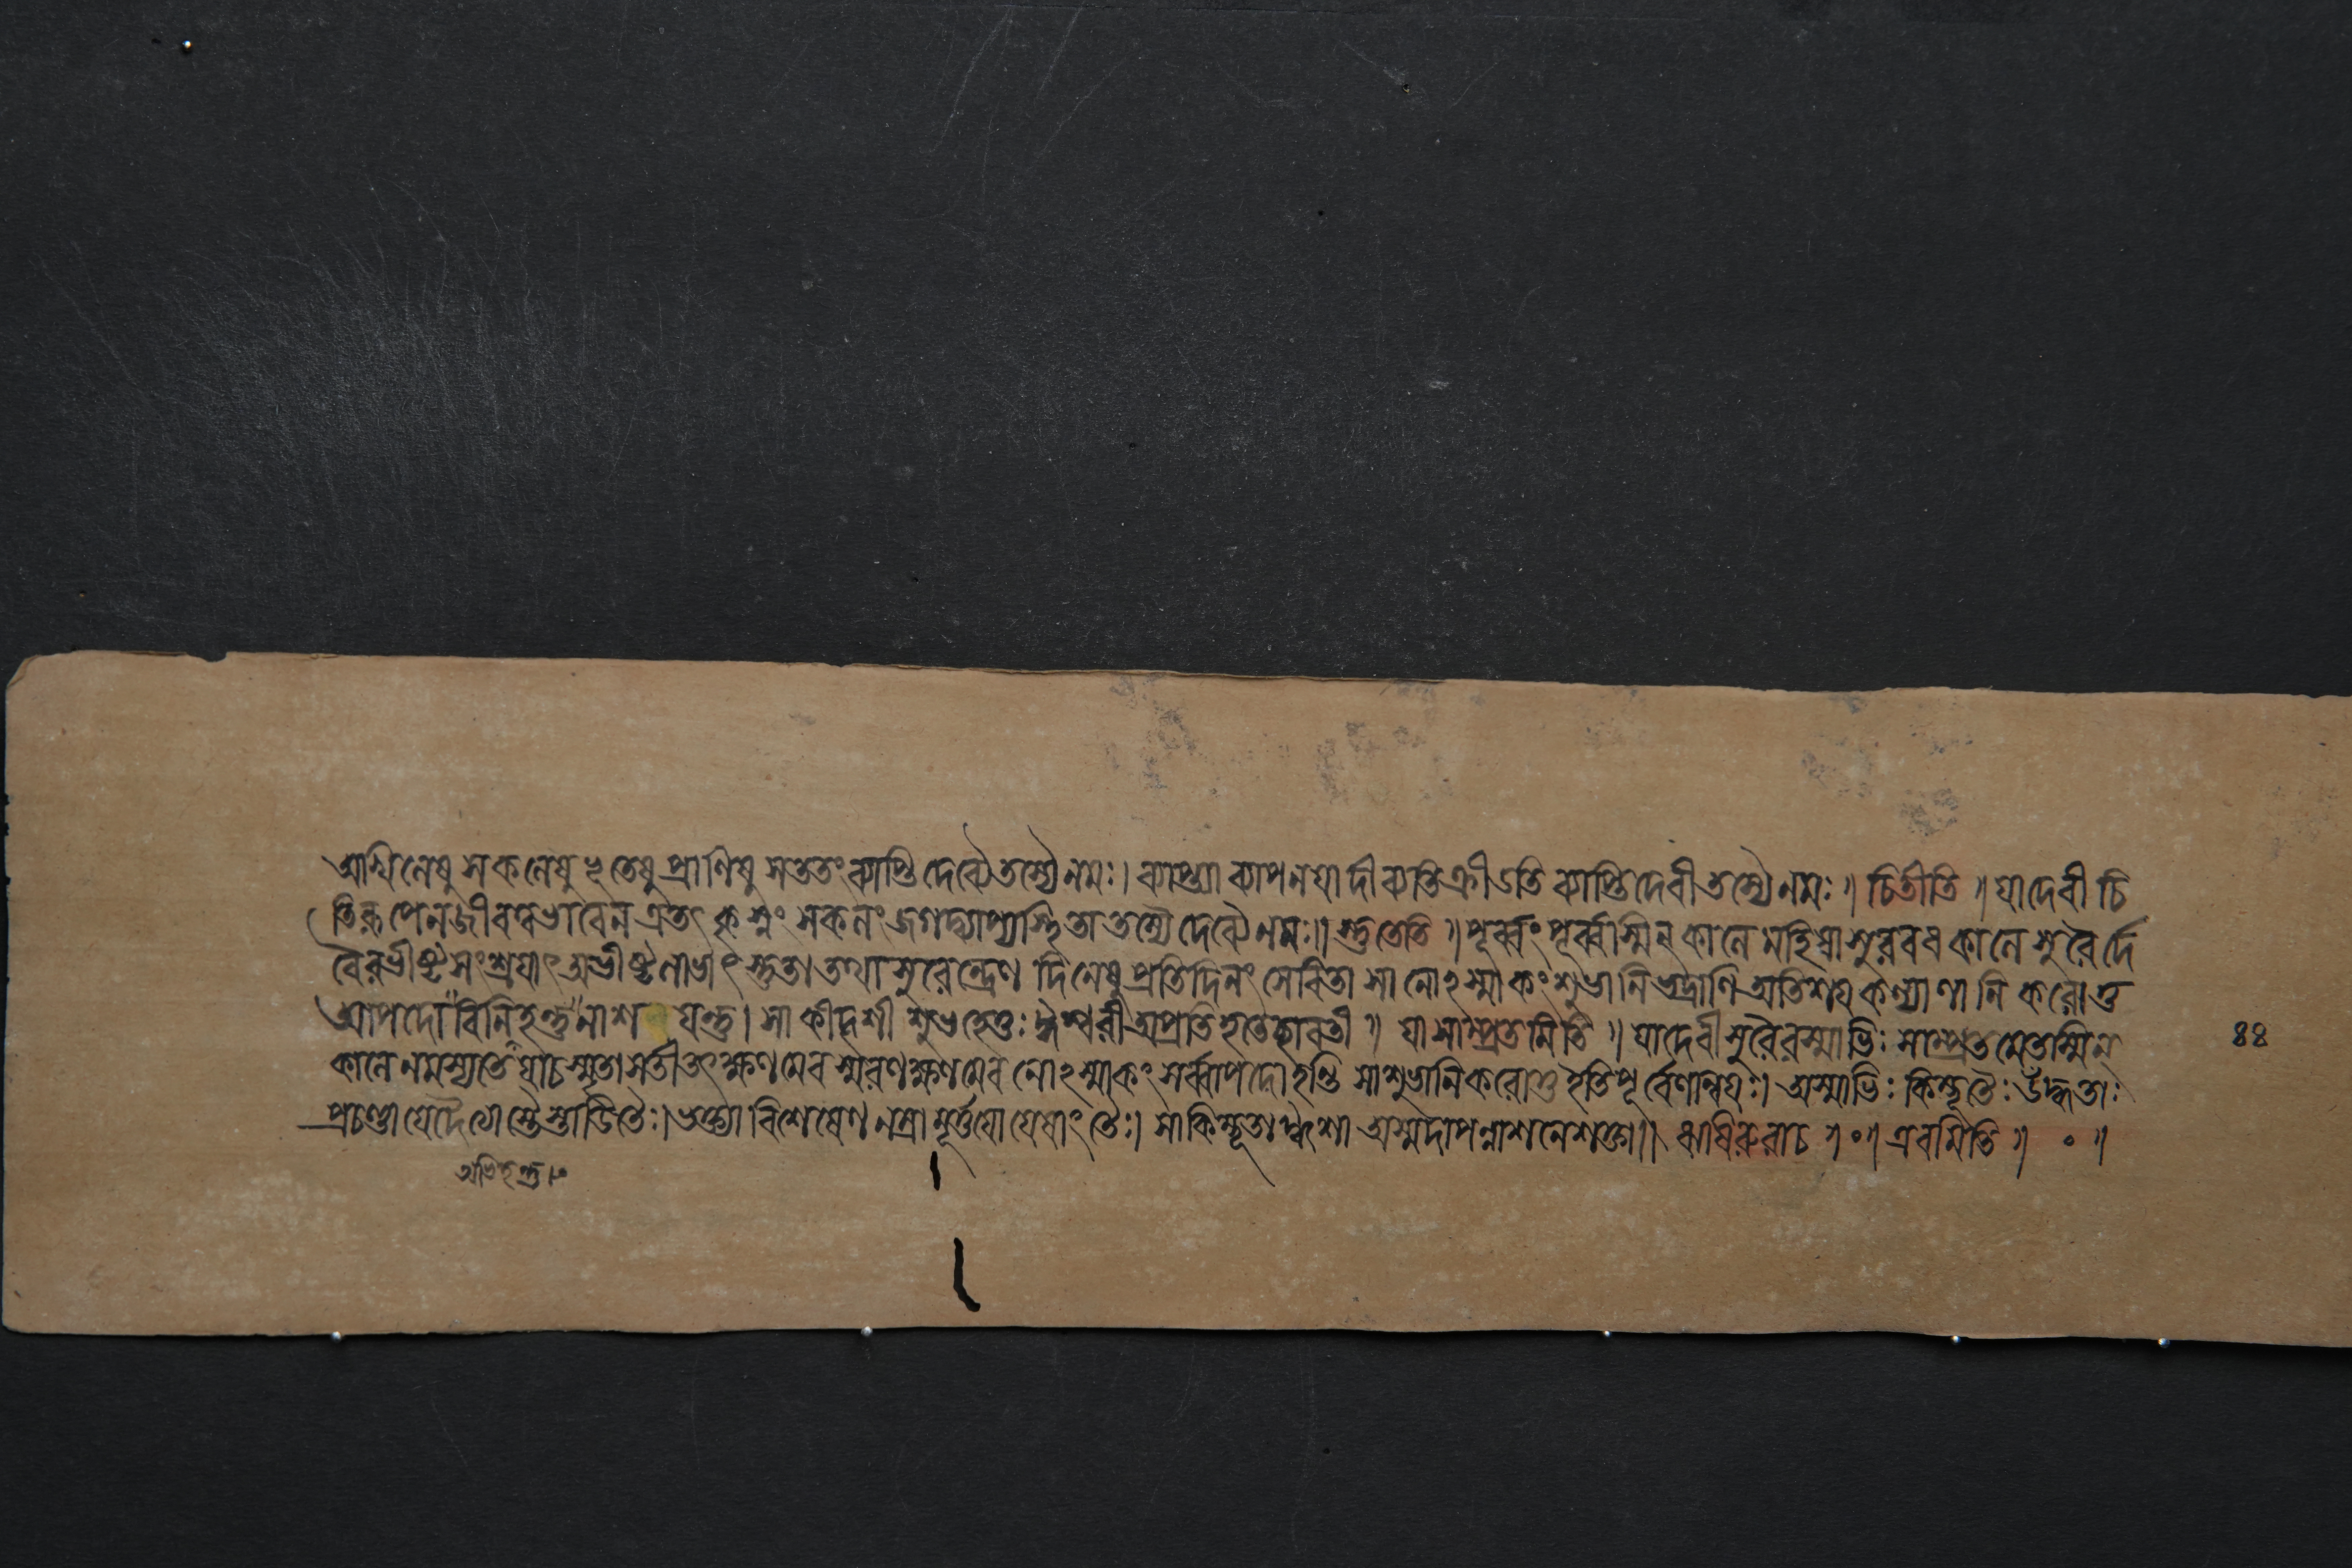 আখিলেষু সকলেষু ভূতেষু প্রাণিষু সততং ব্যাপ্তি দেব্যৈ তস্যৈ নমঃ। ব্যাপ্ত্যা ব্যাপনযা দীব্যতি ক্রীডতি ব্যাপ্তিদেবী তস্যৈ নমঃ॥ চিতীতি॥ যা দেবী চি
তিরূপেন জীবস্বভাবেন এতৎ কৃস্নং সকলং জগদ্ব্যাপ্যস্থিতা তস্যৈ দেব্যৈ নমঃ॥ স্তুতেতি॥ পূর্ব্বং পূর্ব্বস্মিন্ কালে মহিষাসুরবধকালে সুরৈর্দে
বৈরভীষ্টসংশ্রযাৎ অভীষ্টলাভাৎ স্তুতা তথা সুরেন্দ্রেণ দিনেষু প্রতিদিনং সেবিতা সা নোঽস্মাকং শুভানি ভদ্রাণি অতিশয কল্যাণানি করোতু
আপদো বিনিহন্তু নাশ যন্তু। সা কীদৃশী শুভহেতুঃ ঈশ্বরী অপ্রতিহতেচ্ছাবতী॥ যা সাম্প্রতমিতি॥ যা দেবী সুরৈরস্মাভিঃ সাম্প্রতমেতস্মিন্
কালে নমস্যতে যাচ স্মৃতা সতী তৎক্ষণমেব স্মরণক্ষণমেব নোঽস্মাকং সর্ব্বাপদো হন্তি সা শুভানি করোতু ইতি পূর্ব্বেণান্বযঃ। অস্মাভিঃ কিম্ভূতৈঃ উদ্ধতাঃ
প্রচণ্ডা যে দৈত্যাস্তৈস্তাডিতৈঃ। ভক্ত্যা বিশেষেণ নম্রা মূর্ত্তযো যেষাং তৈঃ। সা কিম্ভূতা ঈশা অস্মদাপন্নাশনে শক্তা॥ ঋষিরুবাচ॥০॥ এবমিতি॥ ০॥
অভিহন্তু।
৪৪